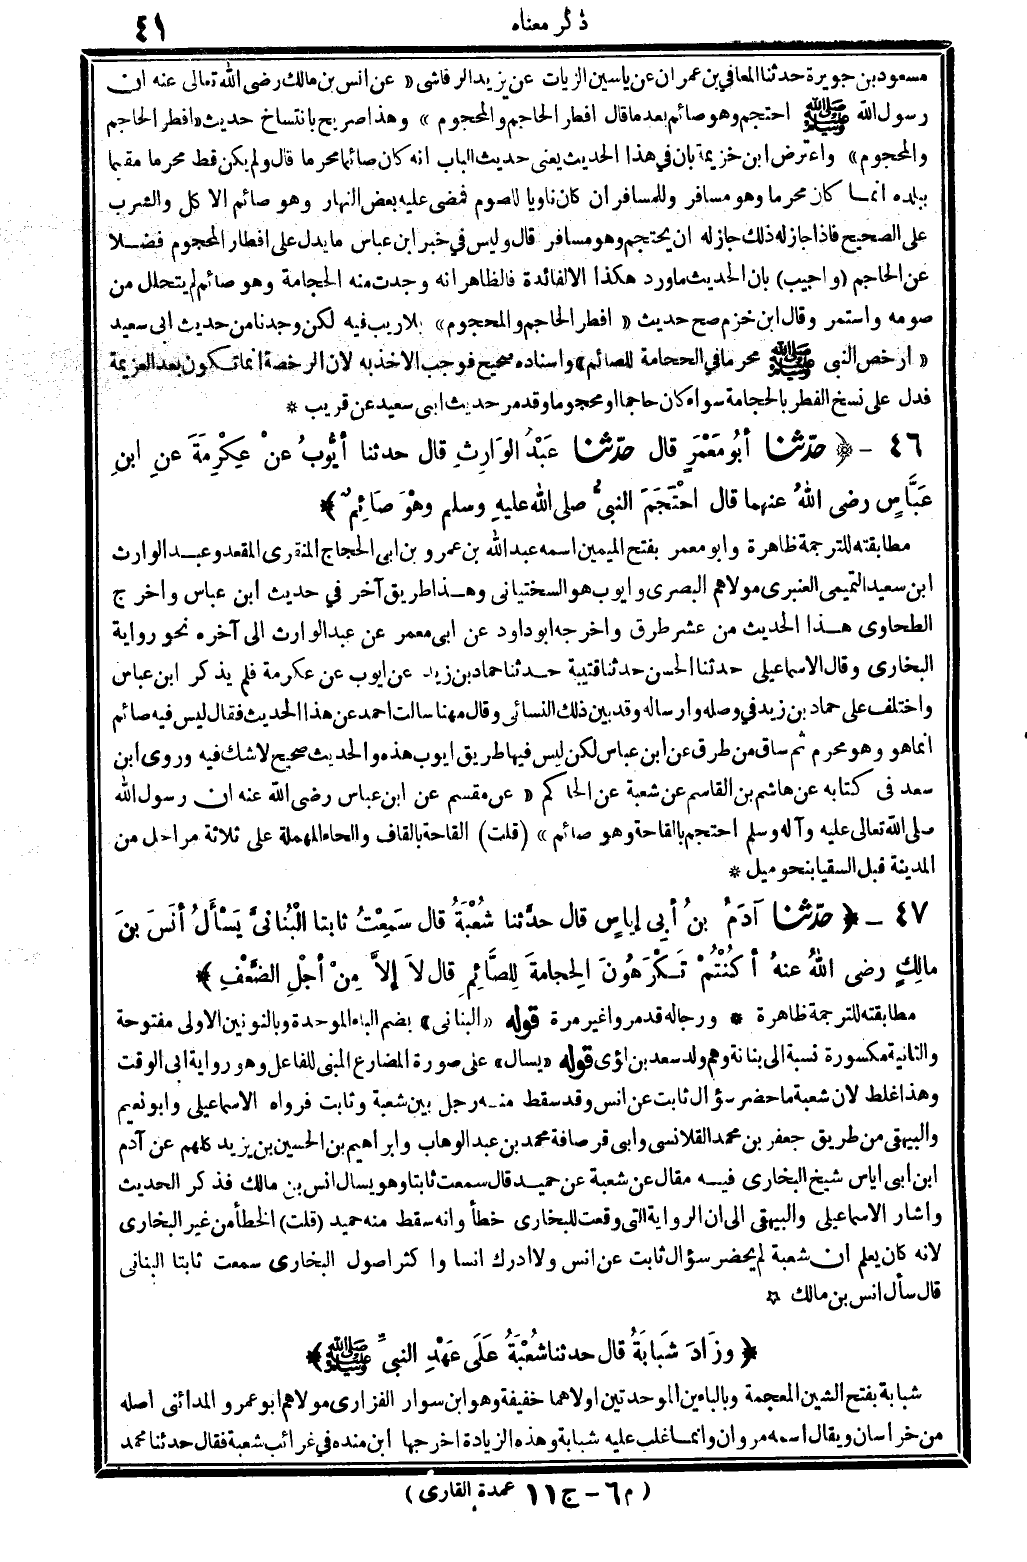 ذكر معناه ٤١
مسعود بن جويرة حدثنا المعافي بن عمران عن ياسين الزيات عن يزيد الرقاشي «عن انس بن مالك رضى الله تعالى عنه ان
رسول الله ﷺ احتجم وهو صائم بعد ما قال افطر الحاجم والمحجوم» وهذا صريح بانتساخ حديث «افطر الحاجم
والمحجوم» واعترض ابن خزيمة بان في هذا الحديث يعنى حديث الباب انه كان صائما محرما قال ولم يكن قط محرما مقيما
ببلده انما كان محرما وهو مسافر وللمسافر ان كان ناويا للصوم فمضى عليه بعض النهار وهو صائم الاكل والشرب
على الصحيح فاذا جاز له ذلك جاز له ان يحتجم وهو مسافر قال وليس في خبر ابن عباس ما يدل على افطار المحجوم فضلا
عن الحاجم (واجيب) بان الحديث ما ورد هكذا الا لفائدة فالظاهر انه وجدت منه الحجامة وهو صائم لم يتحلل من
صومه واستمر وقال ابن حزم صح حديث «افطر الحاجم والمحجوم» بلا ريب فيه لكن وجدنا من حديث ابى سعيد
«ارخص النبى ﷺ محرما في الحجامة للصائم» واسناده صحيح فوجب الاخذ به لان الرخصة انما تكون بعد العزيمة
فدل على نسخ الفطر بالحجامة سواء كان حاجما او محجوما وقد مر حديث ابى سعيد عن قريب *
٤٦ - ﴿ حدّثنا أبُو مَعْمَرٍ قال حدّثنا عَبْدُ الوَارِثِ قال حدثنا أيُّوبُ عنْ عِكْرِمَةَ عنِ ابنِ
عَبَّاسٍ رضى اللهُ عنهما قال احْتَجَمَ النبىُّ صلى الله عليهِ وسلم وهْوَ صَائِمٌ ﴾
مطابقته للترجمة ظاهرة وابو معمر بفتح الميمين اسمه عبد الله بن عمرو بن ابى الحجاج المنقرى المقعد وعبد الوارث
ابن سعيد التميمى العنبرى مولاهم البصرى وايوب هو السختيانى وهذا طريق آخر في حديث ابن عباس واخرج
الطحاوى هذا الحديث من عشر طرق واخرجه ابو داود عن ابى معمر عن عبد الوارث الى آخره نحو رواية
البخارى وقال الاسماعيلى حدثنا الحسن حدثنا قتيبة حدثنا حماد بن زيد عن ايوب عن عكرمة فلم يذكر ابن عباس
واختلف على حماد بن زيد في وصله وارساله وقد بين ذلك النسائى وقال مهنا سالت احمد عن هذا الحديث فقال ليس فيه صائم
انما هو وهو محرم ثم ساق من طرق عن ابن عباس لكن ليس فيها طريق ايوب هذه والحديث صحيح لا شك فيه وروى ابن
سعد فى كتابه عن هاشم بن القاسم عن شعبة عن الحاكم «عن مقسم عن ابن عباس رضى الله عنه ان رسول الله
صلى الله تعالى عليه وآله وسلم احتجم بالقاحة وهو صائم» (قلت) القاحة بالقاف والحاء المهملة على ثلاثة مراحل من
المدينة قبل السقيا بنحو ميل *
٤٧ - ﴿ حدّثنا آدَمُ بنُ أبي إياسٍ قال حدَّثنا شُعْبَةُ قال سَمِعْتُ ثابتا الْبُنانىَّ يَسْأَلُ أنَسَ بنَ
مالكٍ رضى اللهُ عنهُ أكُنْتُمْ تَكْرَهُونَ الحِجامةَ لِلصَّائِمِ قال لاَ إلاَّ مِنْ أجْلِ الضَّعْفِ ﴾
مطابقته للترجمة ظاهرة * ورجاله قد مروا غير مرة قوله «البنانى» بضم الباء الموحدة وبالنونين الاولى مفتوحة
والثانية مكسورة نسبة الى بنانة وهم ولد سعد بن لؤى قوله «يسال» على صورة المضارع المبنى للفاعل وهو رواية ابى الوقت
وهذا غلط لان شعبة ما حضر سؤال ثابت عن انس وقد سقط منه رجل بين شعبة وثابت فرواه الاسماعيلى وابو نعيم
والبيهقى من طريق جعفر بن محمد القلانسى وابى قرصافة محمد بن عبد الوهاب وابراهيم بن الحسين بن يزيد كلهم عن آدم
ابن ابى اياس شيخ البخارى فيه مقال عن شعبة عن حميد قال سمعت ثابتا وهو يسال انس بن مالك فذكر الحديث
وأشار الاسماعيلى والبيهقى الى ان الرواية التى وقعت للبخارى خطأ وانه سقط منه حميد (قلت) الخطأ من غير البخارى
لانه كان يعلم ان شعبة لم يحضر سؤال ثابت عن انس ولا أدرك انسا واكثر اصول البخارى سمعت ثابتا البنانى
قال سأل انس بن مالك *
﴿ وزَادَ شَبَابَةُ قال حدثنا شُعْبَةُ عَلَى عَهْدِ النبىِّ ﷺ ﴾
شبابة بفتح الشين المعجمة وبالباءين الموحدتين اولاهما خفيفة وهو ابن سوار الفزارى مولاهم ابو عمرو المدائنى اصله
من خراسان ويقال اسمه مروان وانما غلب عليه شبابة وهذه الزيادة اخرجها ابن منده في غرائب شعبة فقال حدثنا محمد
(م ٦ - ج ١١ عمدة القارى)